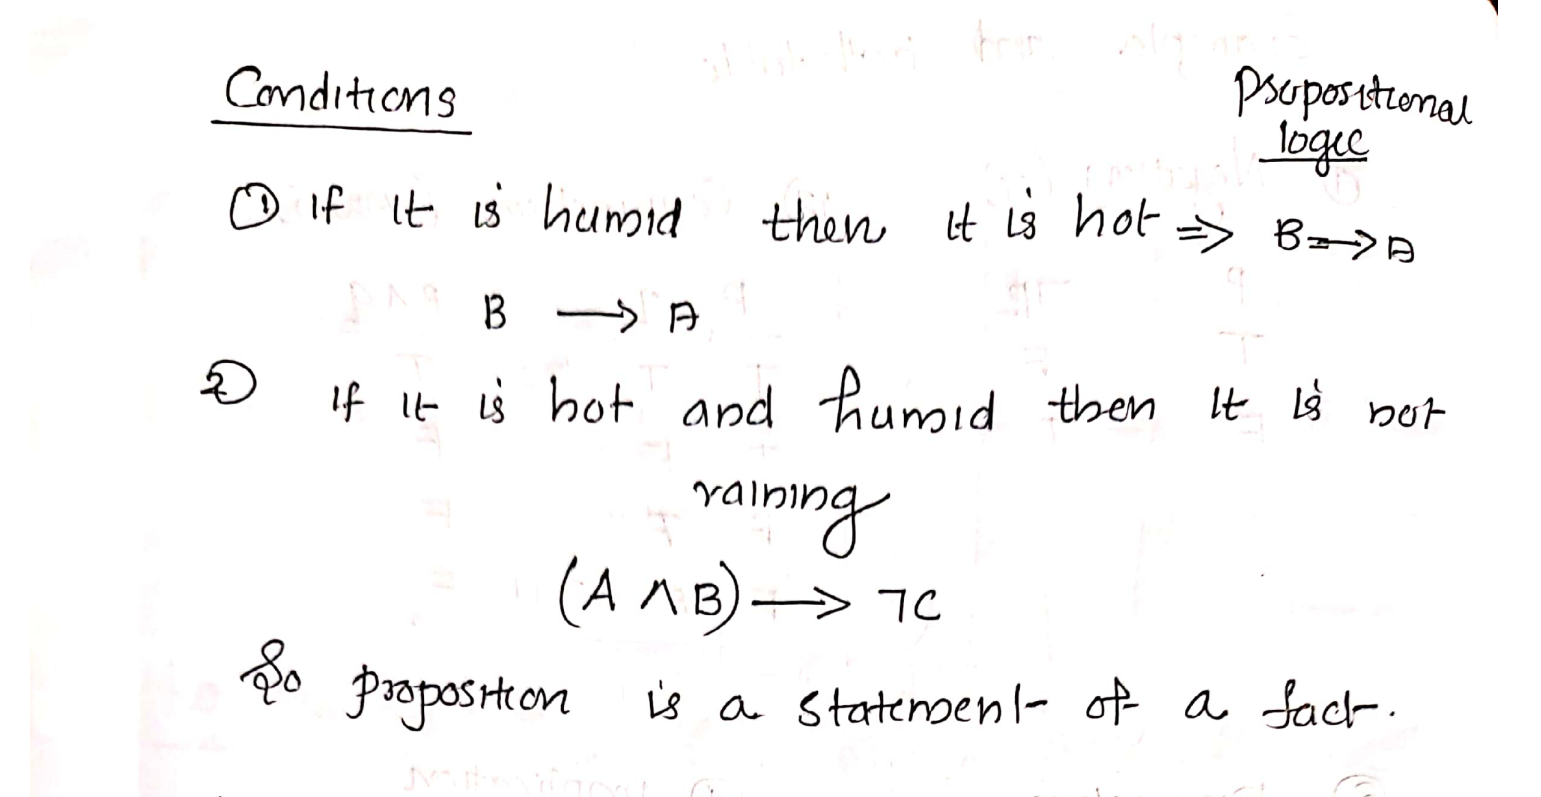 Conditions
Propositional
logic
① If it is humid then it is hot ⇒ B → A
B → A
② If it is hot and humid then it is not
raining
(A ∧ B) → ¬C
So proposition is a statement of a fact.